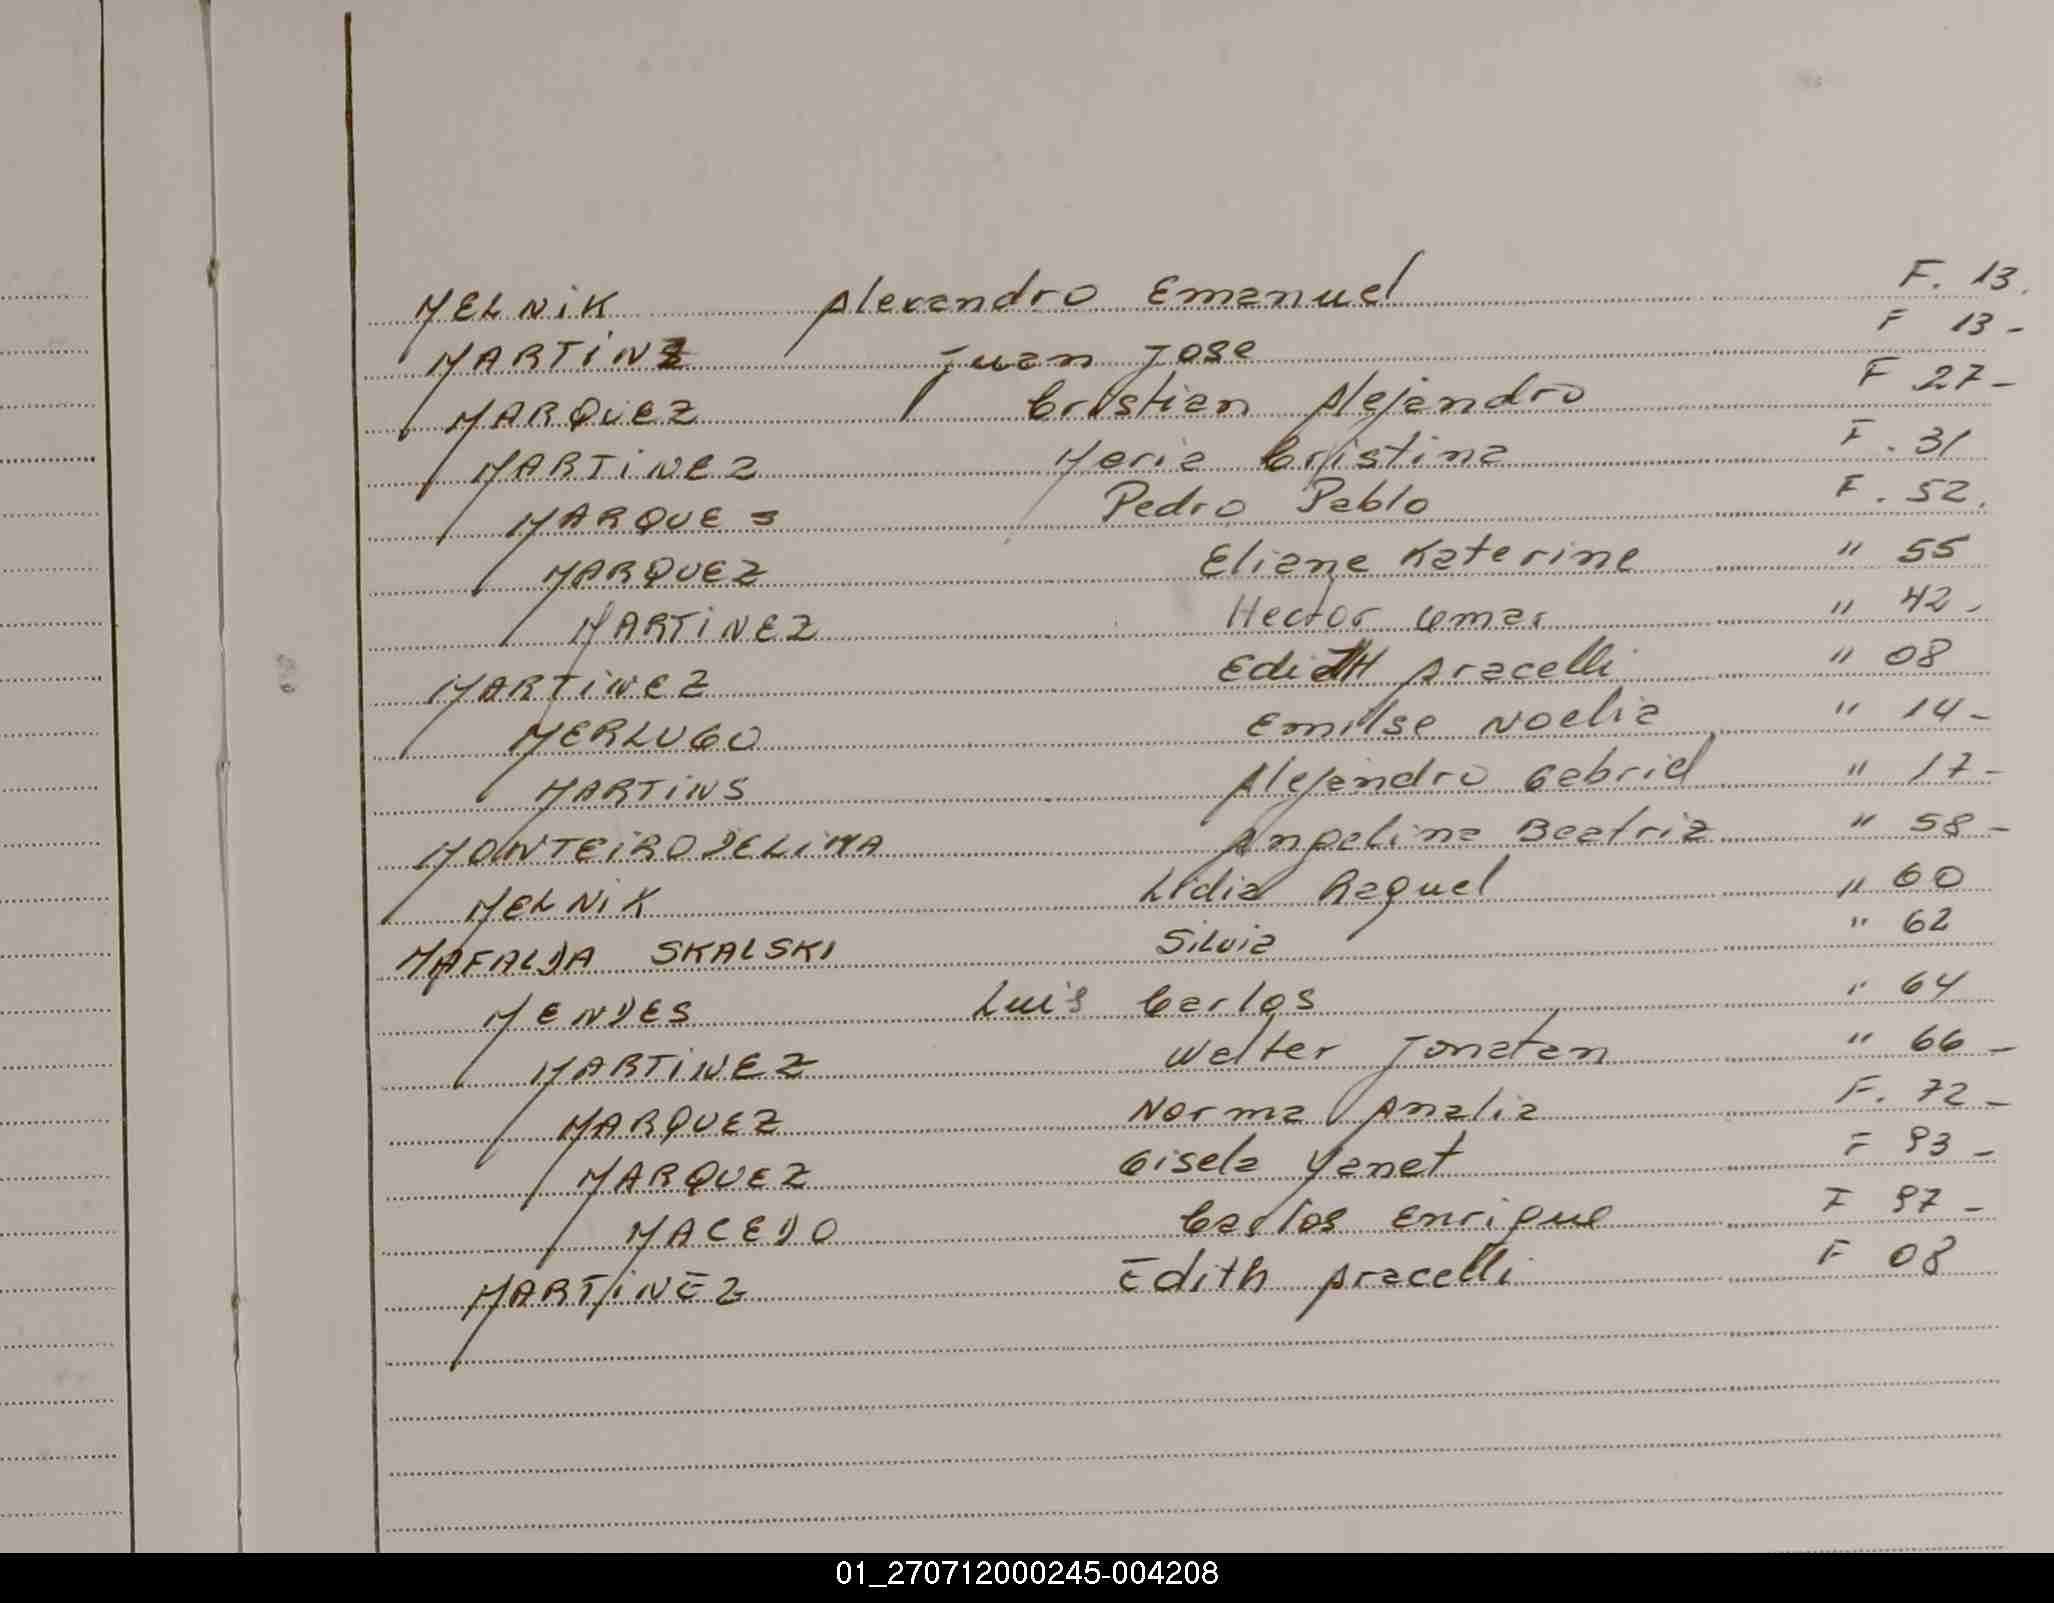 MELNIK Alexandro Emanuel F. 13.
MARTINS Juan Jose F 13-
MARQUEZ Cristian Alejandro F 27-
MARTINEZ Maria Cristina F. 31
MARQUES Pedro Pablo F. 52.
MARQUEZ Eliane Katerine " 55
MARTINEZ Hector Omar " 42-
MARTINEZ EdiTH Aracelli " 08
MERLUGO Emilse Noelia " 14-
MARTINS Alejandro Gabriel " 17-
MONTEIRO DE LIMA Angelina Beatriz " 58-
MELNIK Lidia Raquel " 60
MAFALDA SKALSKI Silvia " 62
MENDES Luis Carlos " 64
MARTINEZ Walter Jonatan " 66-
MARQUEZ Norma Analia F. 72-
MARQUEZ Gisela Yanet F 93-
MACEDO Carlos Enrique F 97-
MARTINEZ Edith Aracelli F 08
01_270712000245-004208